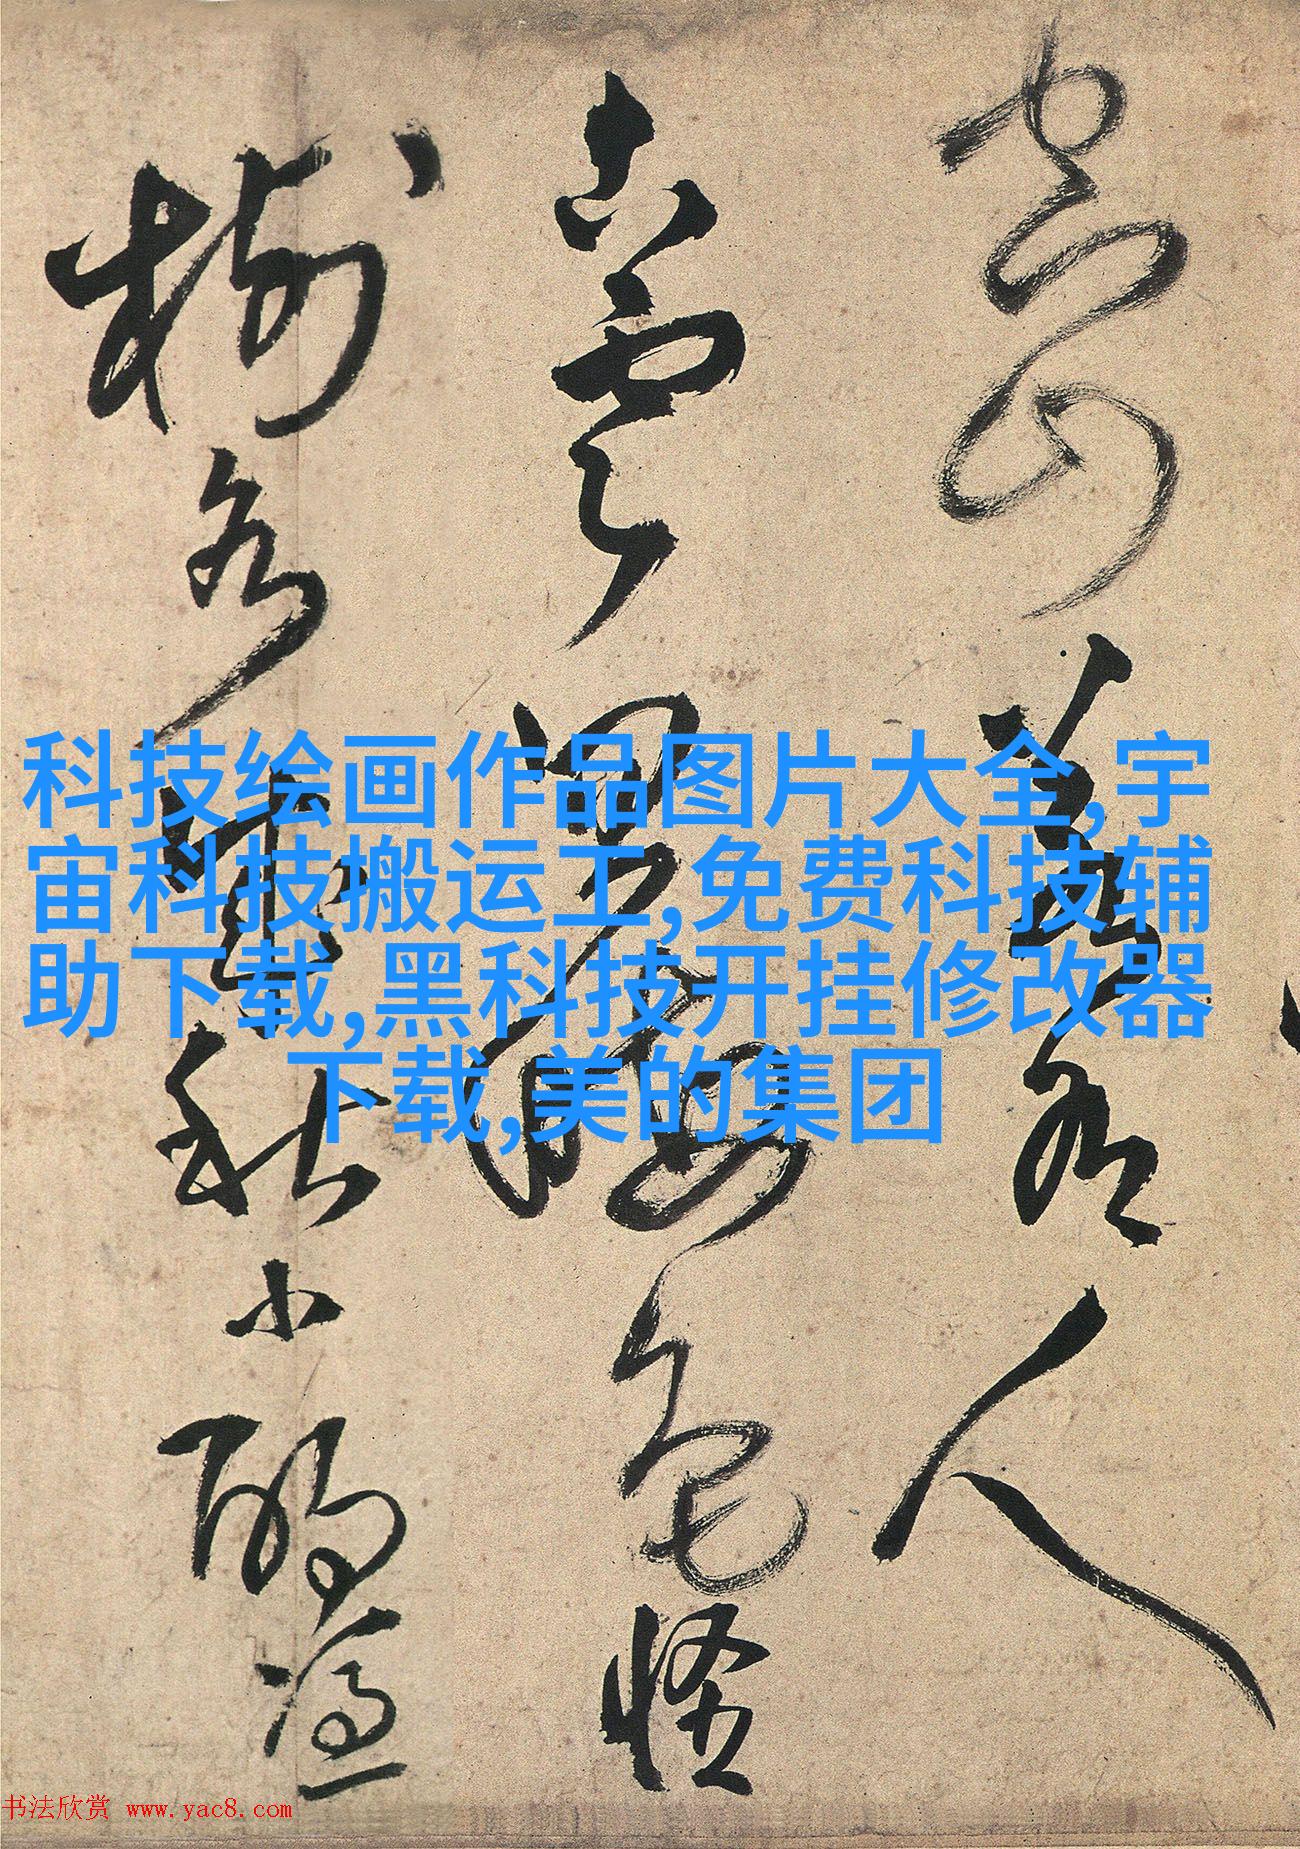 科技绘画作品图片大全,宇
宙科技搬运工,免费科技辅
助下载,黑科技开挂修改器
下载,美的集团
空山 有人
雲 色怪
秋小酌
书法欣赏 www.yac8.com